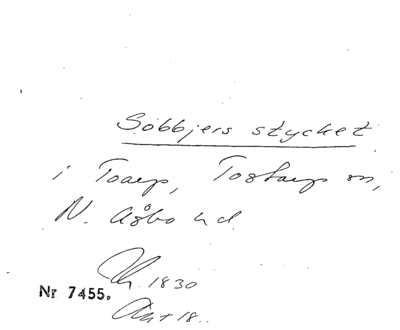 Söbbjers stycket
i Toarp, Tostarp sn,
N. Åsbo hd.
1830
Nr 7455.
18